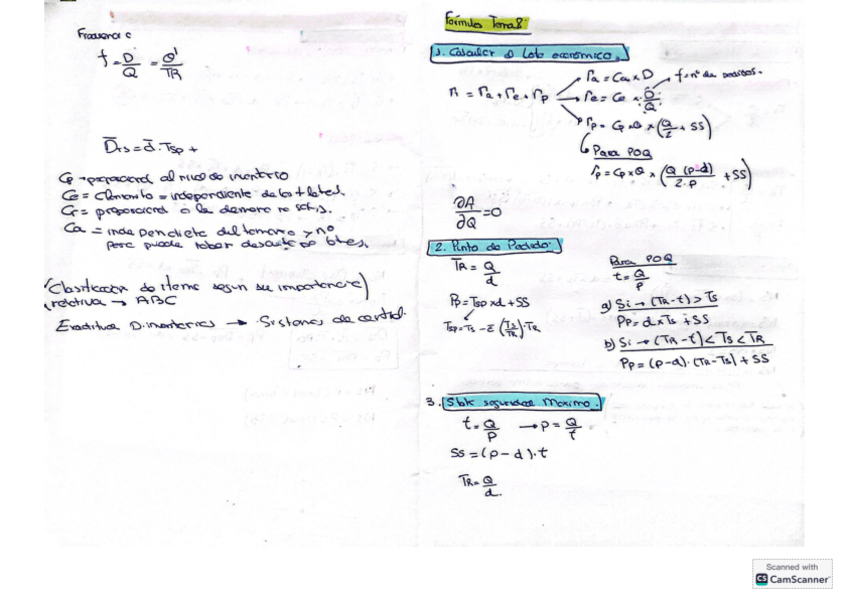 Frecuencia
f = D/Q = Q'/TR
D̄rs = d̄ · Tsp +
Cp → proporcional al nivel de inventario
Ce = elemento = independiente de los + lotes.
Cr = proporcional a la demora
Ca = independiente del tamaño y no
pero puede haber descuento
Clasificación de items según su importancia
relativa → ABC
Exactitud D. inventarios → Sistemas de control.
Fórmulas Tema 8:
1. Calcular el Lote económico.
A = Γa + Γe + Γp
Γa = Ca × D → f = nº de pedidos.
Γe = Ce × D/Q
Γp = Cp × θ × (Q/2 + SS)
Para POQ
Γp = Cp × θ × (Q (p-d)/2·P + SS)
∂A/∂Q = 0
2. Punto de Pedido:
TR = Q/d
Pp = Tsp × d + SS
Tsp = Ts - E (Ts/TR) · TR
Para POQ
t = Q/P
a) Si → (TR - t) > Ts
Pp = d × Ts + SS
b) Si → (TR - t) < Ts < TR
Pp = (p-d) · (TR - Ts) + SS
3. Stock seguridad Maximo.
t = Q/P → P = Q/t
SS = (p - d) · t
TR = Q/d.
Scanned with
CS CamScanner